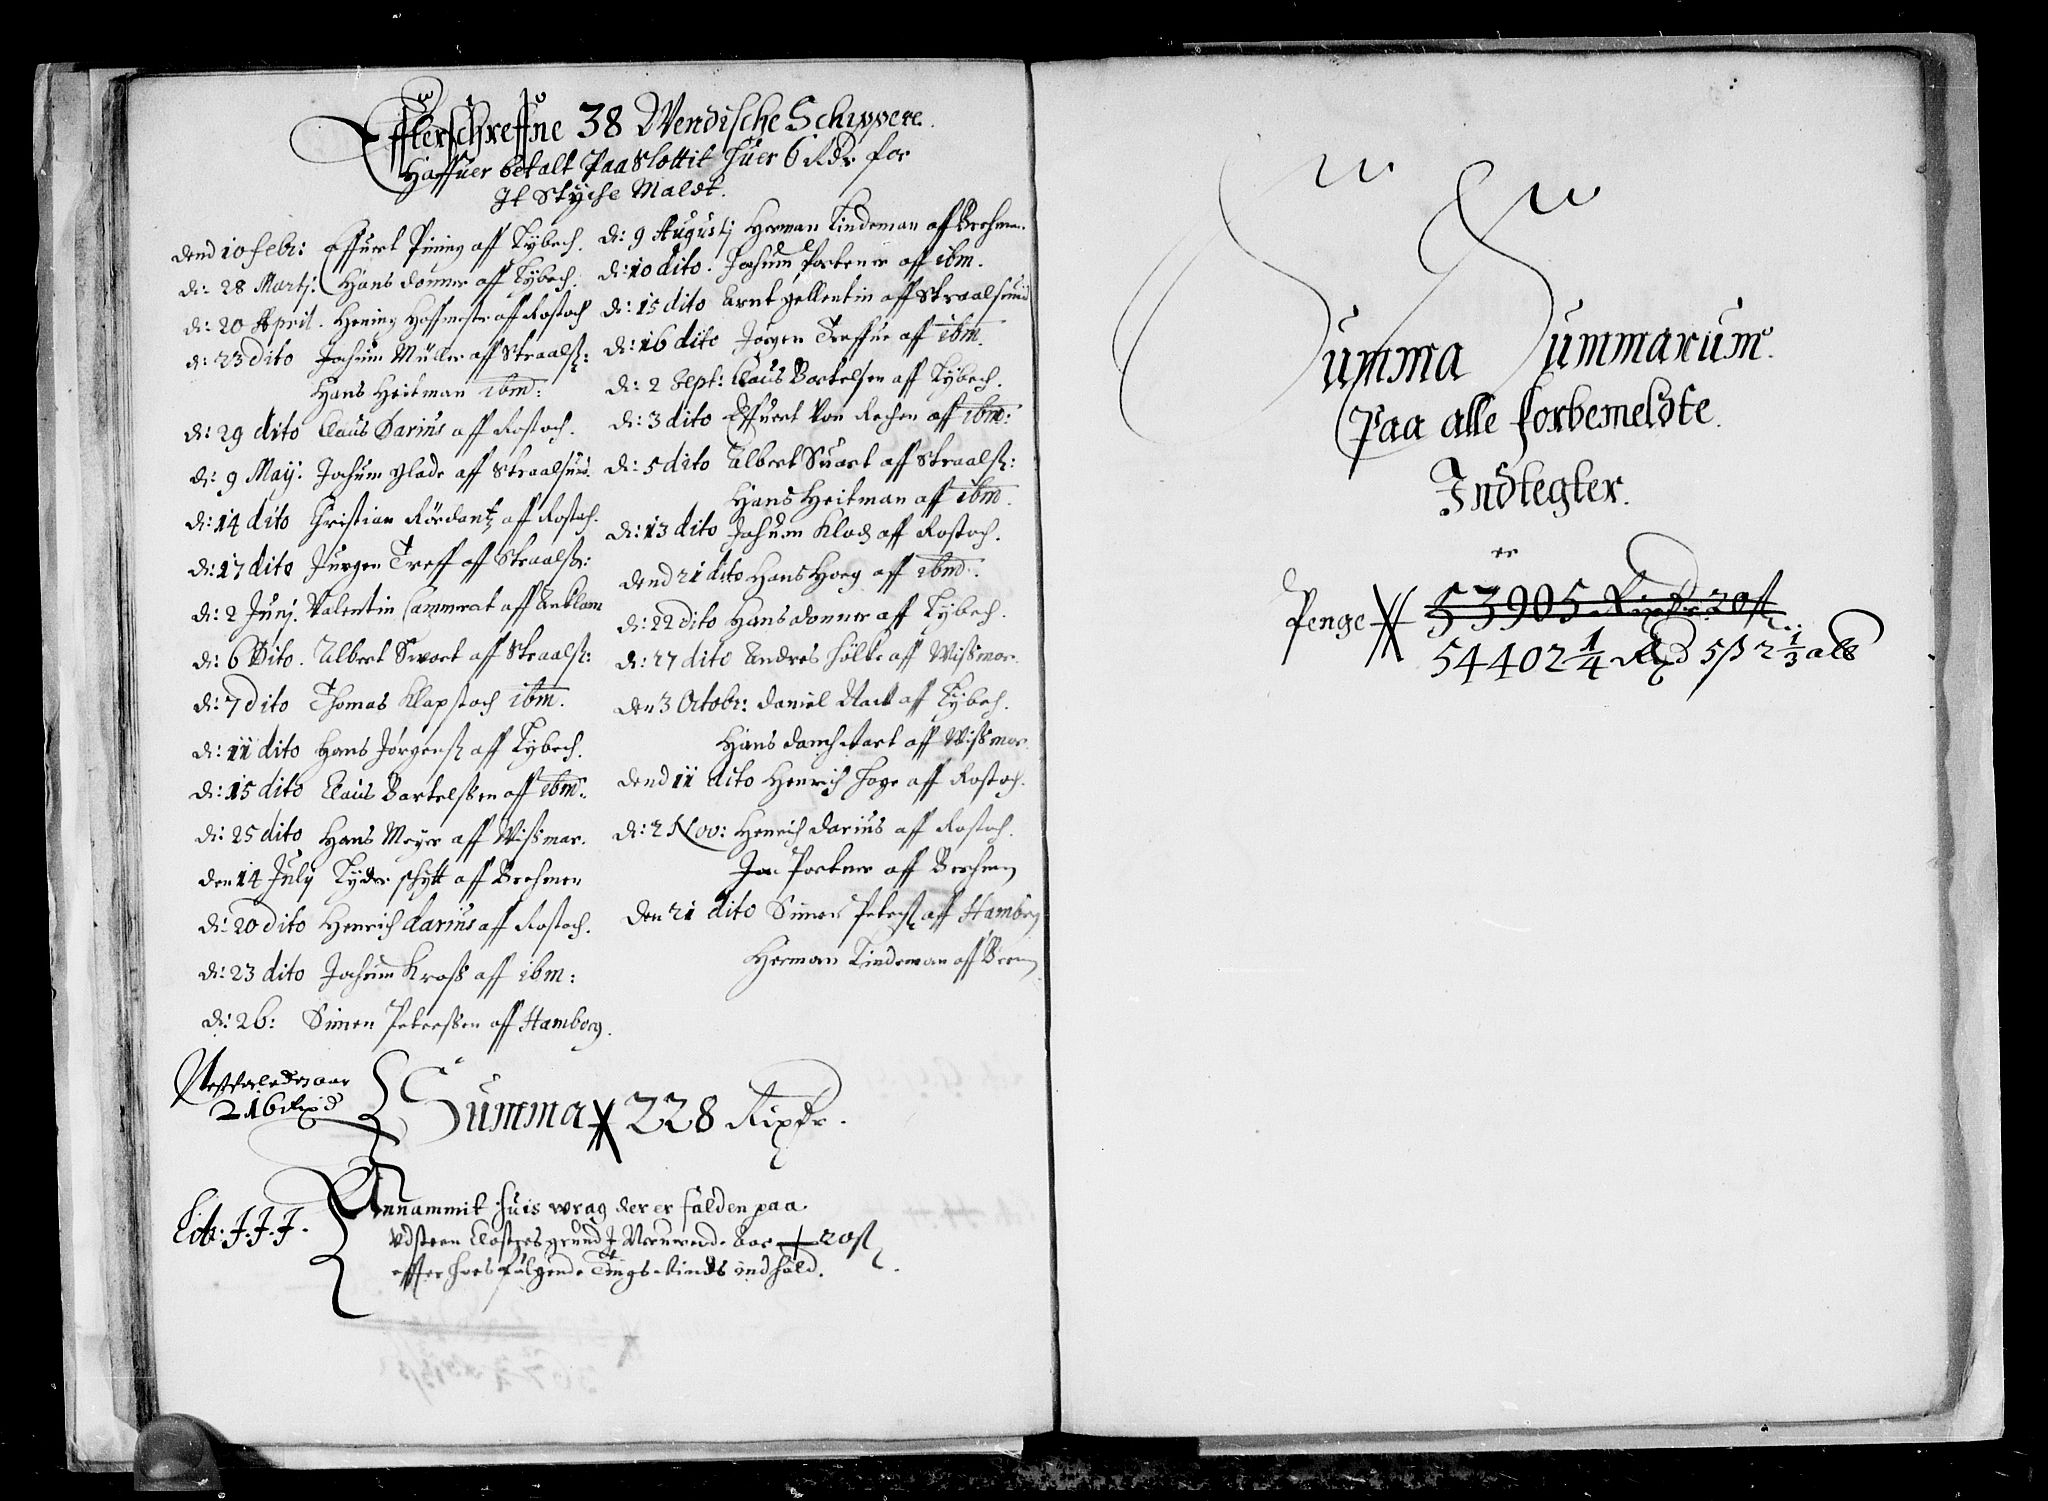 Effterschreffne 38 Wendische Schippere.
Haffuer betalt Paa Slottit huer 6 Rdr for
It Stÿche Maldt.
Dend 10 febr: Effuert Pining aff Lÿbech.
d: 28 Martj: Hans Donner aff Lÿbech.
d: 20 April. Hening Hoffmestr aff Rostoch
d: 23 dito Jochum Müller aff Straals:
Hans Heitman ibm:
d: 29 dito Claus Darius aff Rostoch.
d: 9 Maij. Jochum Glade aff Straalsund.
d: 14 dito Christian Rördantz aff Rostoch.
d: 17 dito Jurgen Treff aff Straals:
d: 2 Junj. Valentin Cammerat aff Anklam
d: 6 Dito. Albert Swort aff Straals:
d: 7 dito Thomas Klapstoch ibm.
d: 11 dito Hans Jørgens aff Lÿbech.
d: 15 dito Claus Bartelssen aff ibm:
d: 25 dito Hans Meyer aff Wissmar.
den 14 July Tÿder schÿtt aff Brehmen
d: 20 dito Henrich darius aff Rostoch.
d: 23 dito Jochum Kross aff ibm:
d: 26: Simen Peterssen aff Hamborg.
d: 9 Augustj Herman Lindeman aff Brehmen.
d: 10 dito. Jochum Portener aff ibm.
d: 15 dito Arnt gellentin aff Straalsund
d: 16 dito Jørgen Treffue aff ibm.
d: 2 Sept: Claus Bartelsen aff Lÿbech.
d: 3 dito Effuert Von Rechen aff ibm:
d: 5 dito Albert Suart aff Straals:
Hans Heitman aff ibm.
d: 13 dito Johum Klod aff Rostoch.
dend 21 dito Hans Hoeg aff ibmd:
d: 22 dito Hans donner aff Lÿbech.
d: 27 dito Andres Hölke aff Wissmar.
den 3 Octobr: Daniel Rack aff Lÿbech.
Hans danchwart aff Wissmar.
dend 11 dito Henrich Hoge aff Rostoch.
d: 2 Nov: Henrich Darius aff Rostoch.
Jo: Portner aff Brehmen
den 21 dito Simen Peters aff Hamborg
Herman Lindeman aff Brem
Nestforleden aar
216 Rixd
Summa 228 Rixdr.
Lit: J.J.J.
Annammit huis wrag der er falden paa
Vdsteen Closters grund J Neruerende Aar 20 st
effter hoes følgende Tings Vinds indhold.
Summa Summarum
Paa alle forbemeldte
Indtegter.
er
Penge 53905 Rixdr. 20 st
54402 1/4 Rixd 5 β 2 1/3 alb